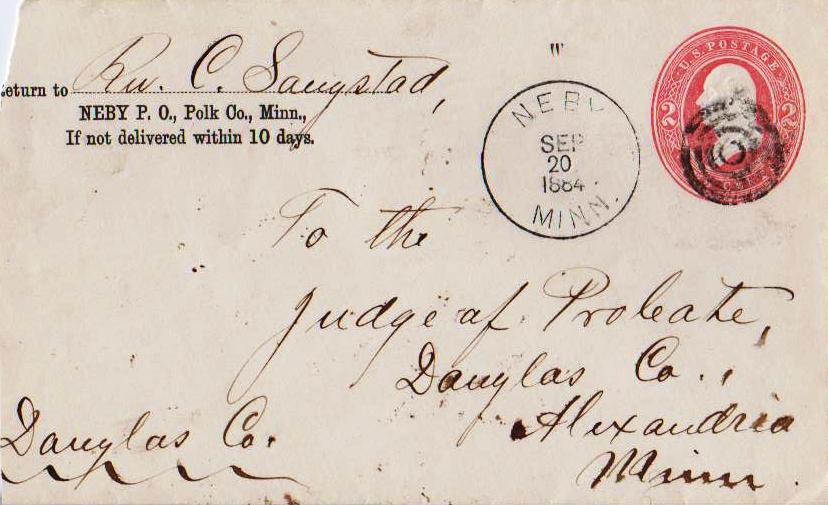 eturn to Rev. C. Saugstad,
NEBY P. O., Polk Co., Minn.,
If not delivered within 10 days.
NEBY
SEP
20
1884
MINN.
U.S. POSTAGE
2 2
To the
Judge of Probate,
Douglas Co.,
Alexandria
Minn.
Douglas Co.